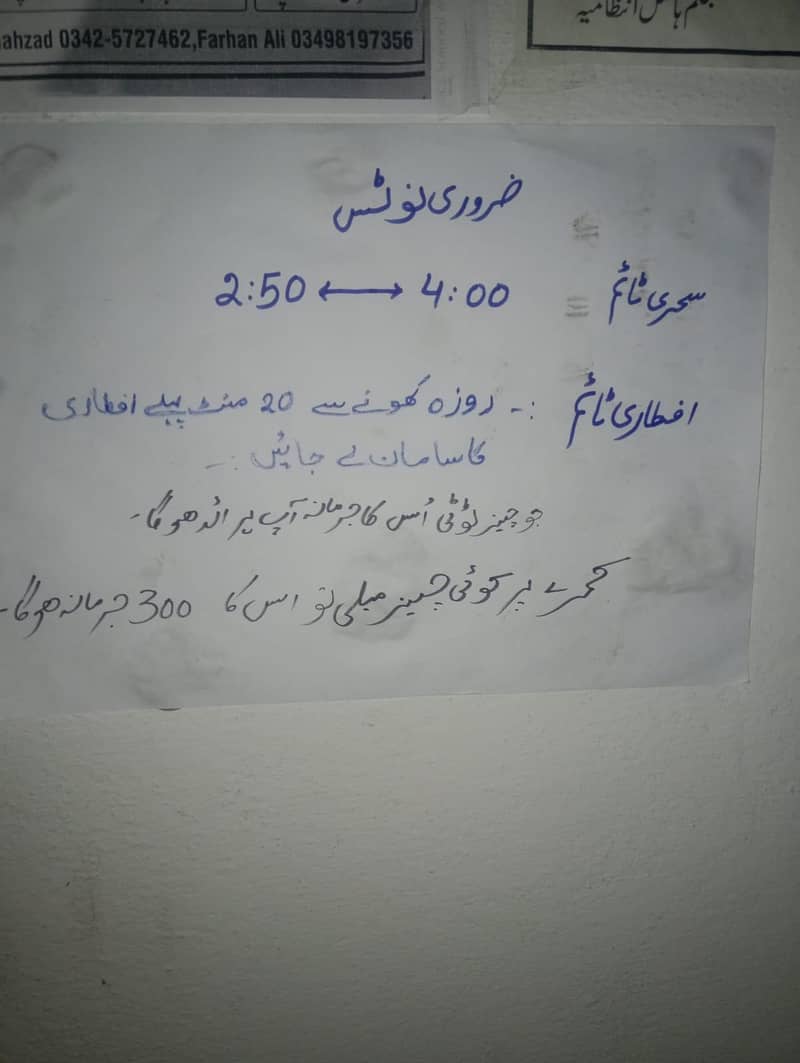 ahzad 0342-5727462,Farhan Ali 03498197356
انتظامیہ
ضروری نوٹس
سحری ٹائم 2:50 ⟷ 4:00
افطاری ٹائم :- روزہ کھونے سے 20 منٹ پہلے افطاری
کا سامان لے جائیں :-
جو چیز ٹوٹی اُس کا جرمانہ آپ پر ہوگا۔
کمرے پر کوئی چیز ملی تو اس کا 300 جرمانہ ہوگا۔